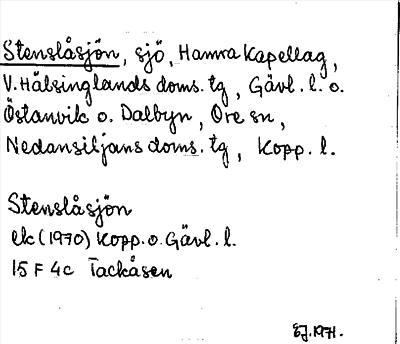 Stenslåsjön, sjö, Hamra Kapellag,
V. Hälsinglands doms. tg, Gävl. l. o.
Östanvik o. Dalbyn, Ore sn,
Nedansiljans doms. tg, Kopp. l.
Stenslåsjön
ek (1970) Kopp. o. Gävl. l.
15 F 4c Tackåsen
EJ. 1971.